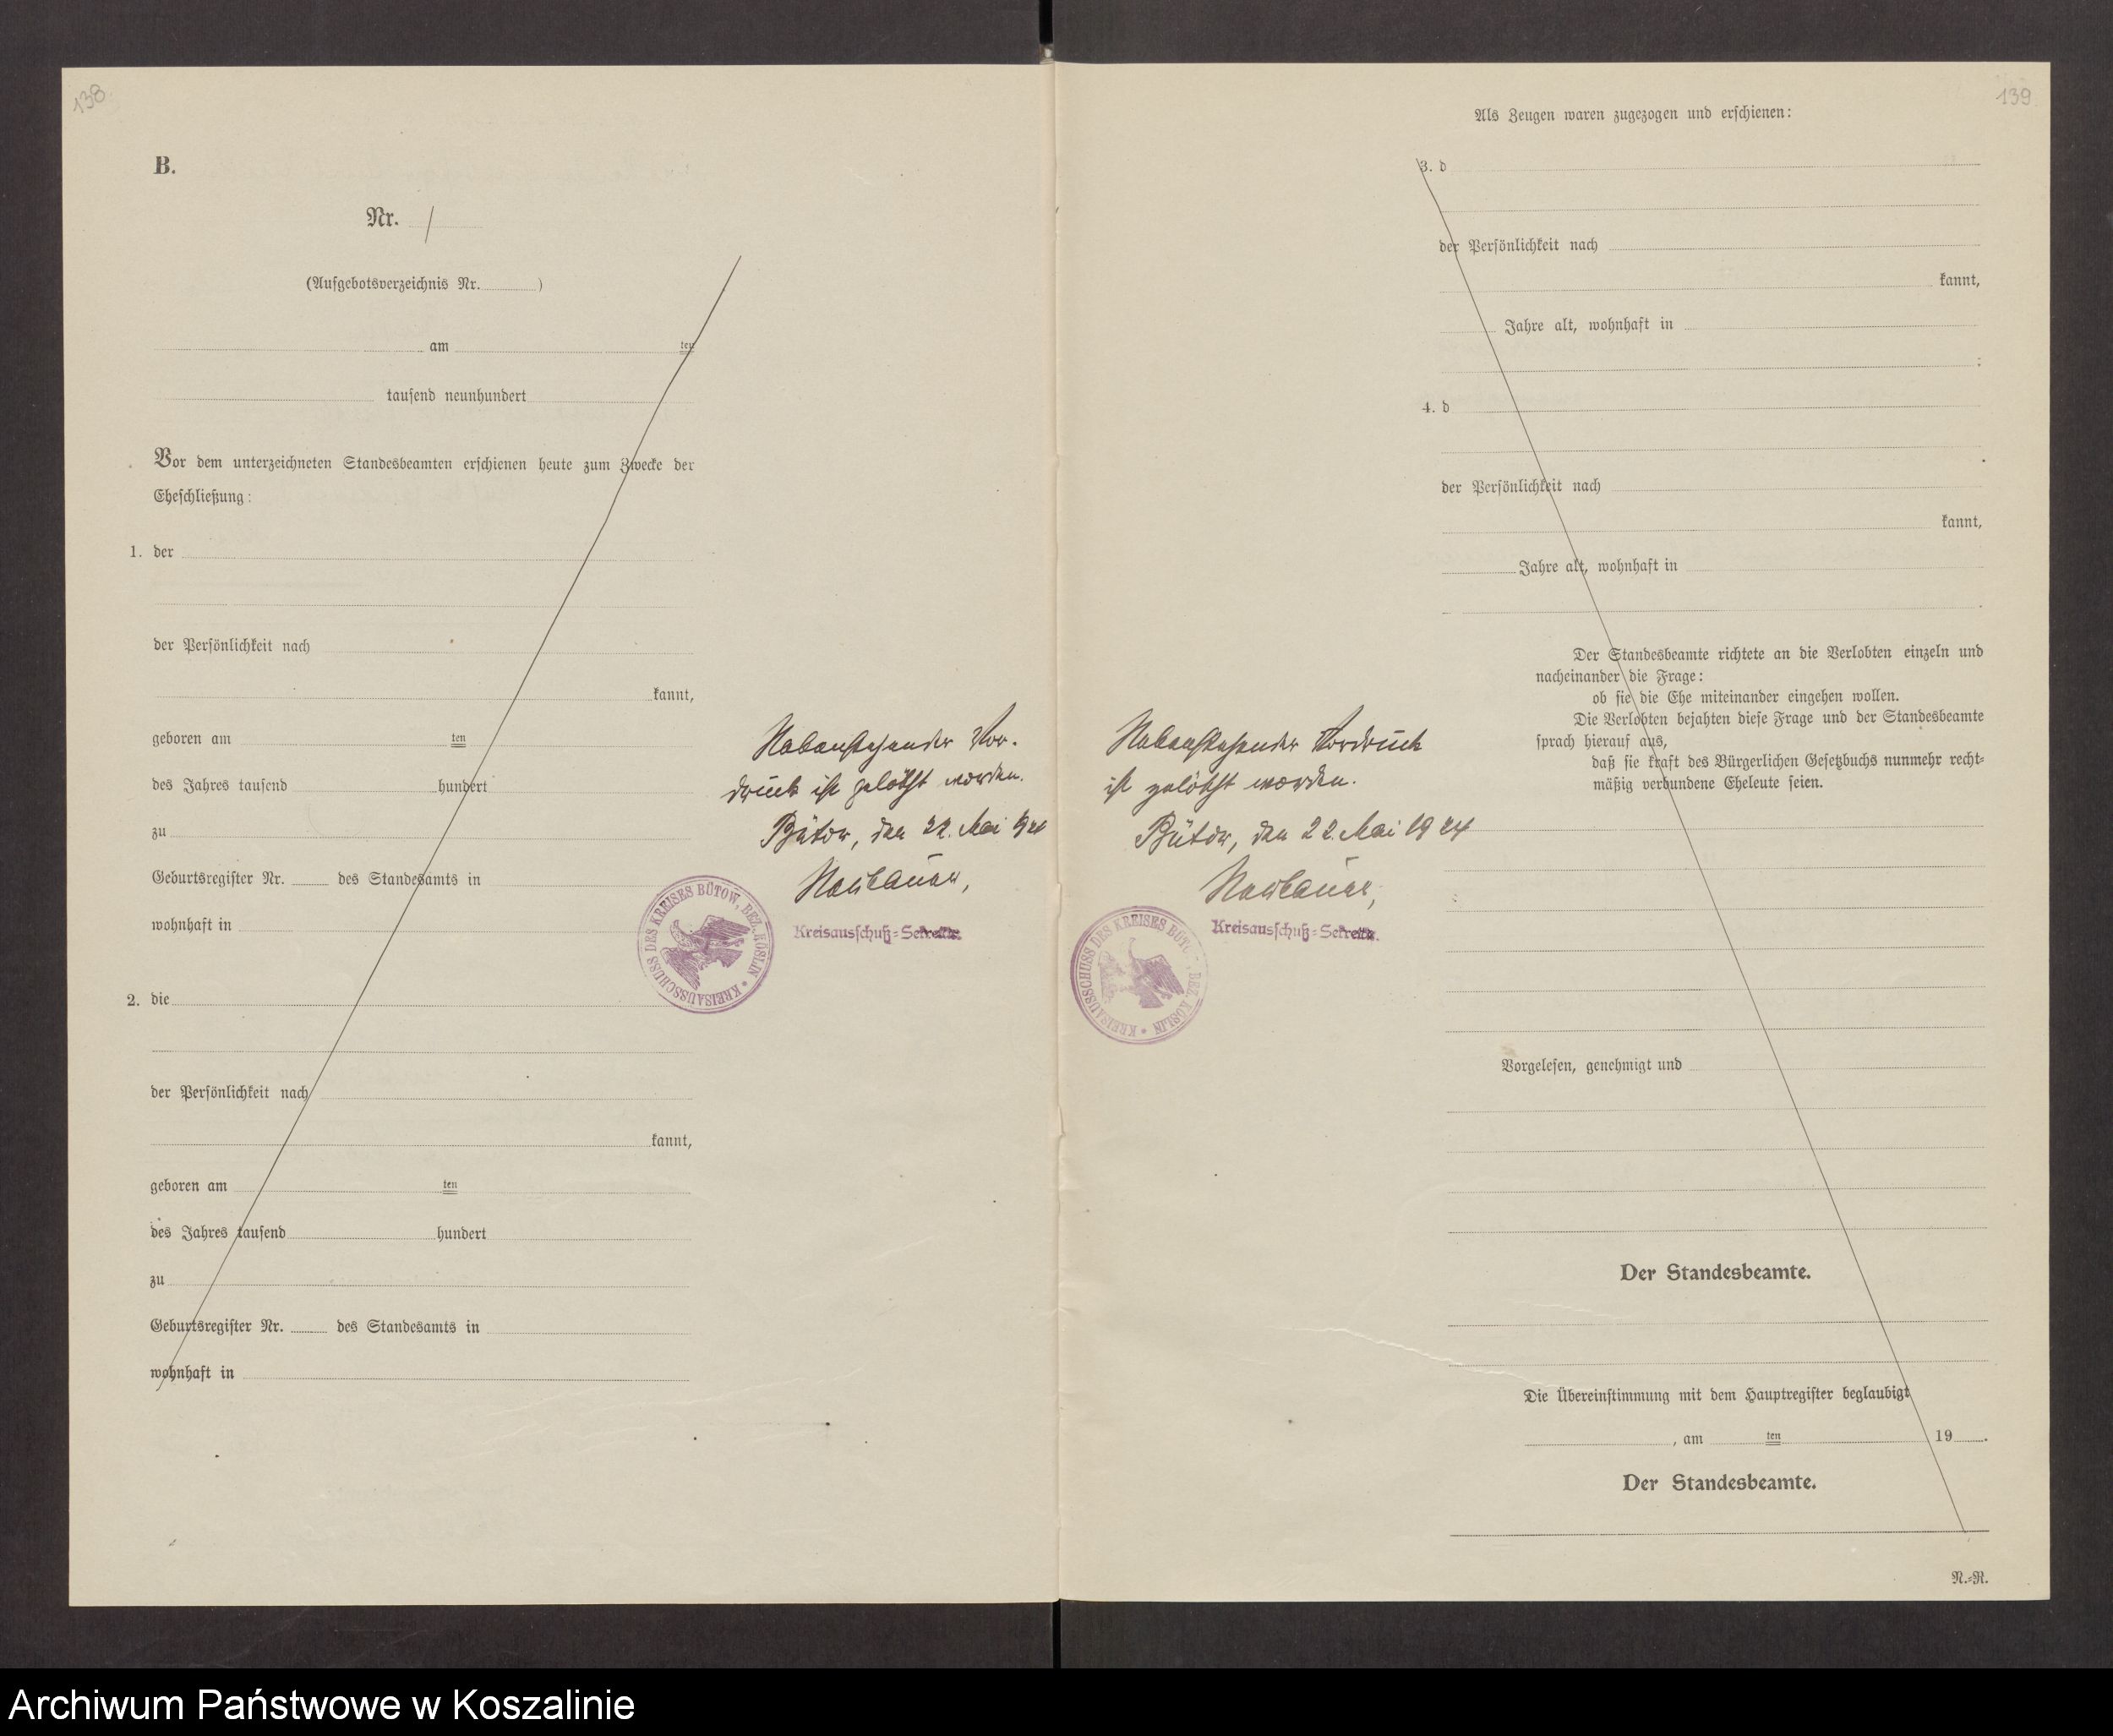 138
B.
Nr. /
(Aufgebotsverzeichnis Nr. )
am ten
tausend neunhundert
Vor dem unterzeichneten Standesbeamten erschienen heute zum Zwecke der
Eheschließung:
1. der
der Persönlichkeit nach
kannt,
geboren am ten
des Jahres tausend hundert
zu
Geburtsregister Nr. des Standesamts in
wohnhaft in
2. die
der Persönlichkeit nach
kannt,
geboren am ten
des Jahres tausend hundert
zu
Geburtsregister Nr. des Standesamts in
wohnhaft in
Nebenstehender Vor-
druck ist gelöscht worden.
Bütow, den 22. Mai 1924
Neubauer,
Kreisausschuß=Sekretär.
KREISAUSSCHUSS DES KREISES BÜTOW, BEZ. KÖSLIN *
139
Als Zeugen waren zugezogen und erschienen:
3. d
der Persönlichkeit nach
kannt,
Jahre alt, wohnhaft in
;
4. d
der Persönlichkeit nach
kannt,
Jahre alt, wohnhaft in
.
Der Standesbeamte richtete an die Verlobten einzeln und
nacheinander die Frage:
ob sie die Ehe miteinander eingehen wollen.
Die Verlobten bejahten diese Frage und der Standesbeamte
sprach hierauf aus,
daß sie kraft des Bürgerlichen Gesetzbuchs nunmehr recht=
mäßig verbundene Eheleute seien.
Nebenstehender Vordruck
ist gelöscht worden.
Bütow, den 22. Mai 1924
Neubauer,
Kreisausschuß=Sekretär.
KREISAUSSCHUSS DES KREISES BÜTOW, BEZ. KÖSLIN *
Vorgelesen, genehmigt und
Der Standesbeamte.
Die Übereinstimmung mit dem Hauptregister beglaubigt
, am ten 19 .
Der Standesbeamte.
N.=R.
Archiwum Państwowe w Koszalinie